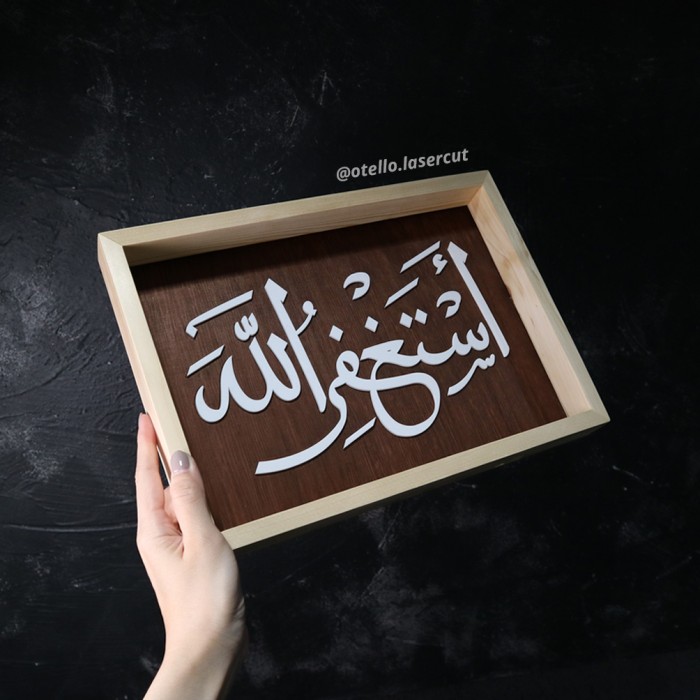 @otello.lasercut
أَسْتَغْفِرُ اللَّهَ